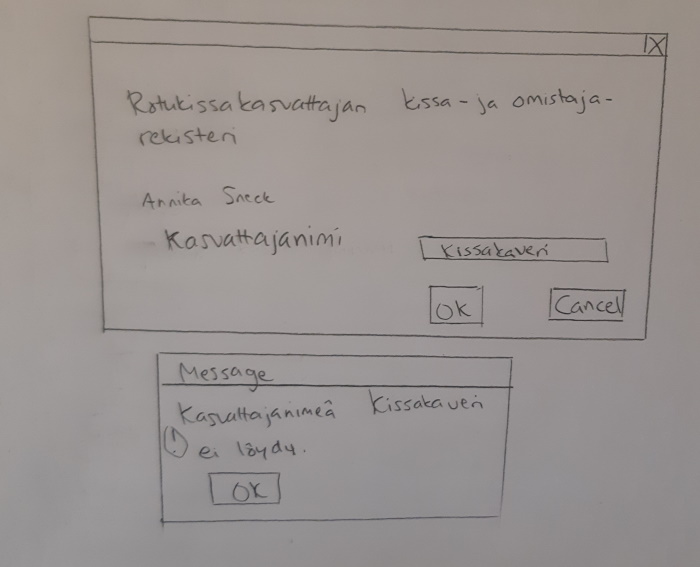 X
Rotukissakasvattajan kissa- ja omistaja-
rekisteri
Annika Sneck
Kasvattajanimi
Kissakaveri
OK Cancel
Message
Kasvattajanimeä Kissakaveri
! ei löydy.
OK